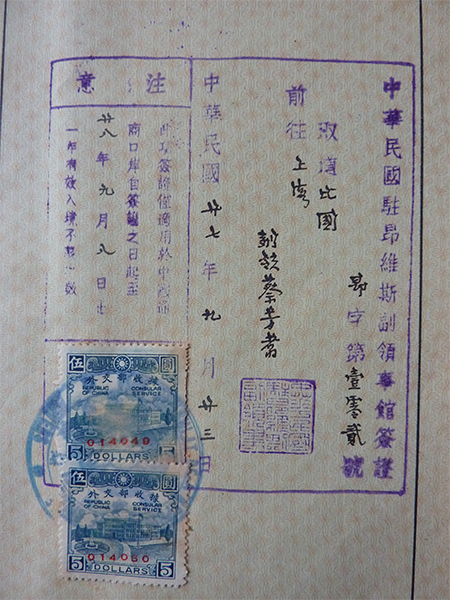 中華民國駐昂維斯副領事館簽證
昂字第壹零貳號
取道比國
前往上海
中華民國廿七年九月廿三日
注意
此項簽證僅適用於中國
商口岸自簽證之日起至
廿八年九月八日止
一年有效入境不
伍 圓
外交部
REPUBLIC OF CHINA
CONSULAR SERVICE
014049
5 DOLLARS 5
伍 圓
外交部
REPUBLIC OF CHINA
CONSULAR SERVICE
014050
5 DOLLARS 5